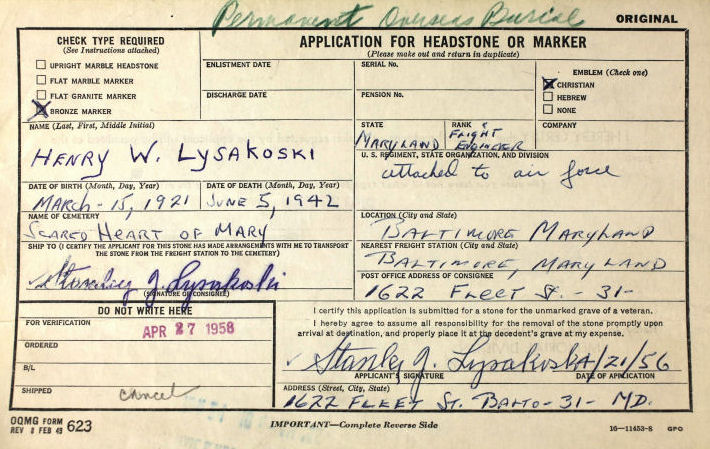 Permanent Overseas Burial
ORIGINAL
CHECK TYPE REQUIRED
(See Instructions attached)
UPRIGHT MARBLE HEADSTONE
FLAT MARBLE MARKER
FLAT GRANITE MARKER
BRONZE MARKER
APPLICATION FOR HEADSTONE OR MARKER
(Please make out and return in duplicate)
ENLISTMENT DATE
DISCHARGE DATE
SERIAL No.
PENSION No.
EMBLEM (Check one)
CHRISTIAN
HEBREW
NONE
NAME (Last, First, Middle Initial)
HENRY W. LYSAKOSKI
STATE
MARYLAND
RANK
FLIGHT
ENGINEER
COMPANY
U. S. REGIMENT, STATE ORGANIZATION, AND DIVISION
attached to air force
DATE OF BIRTH (Month, Day, Year)
MARCH-15, 1921
DATE OF DEATH (Month, Day, Year)
JUNE 5, 1942
NAME OF CEMETERY
SCARED HEART OF MARY
LOCATION (City and State)
BALTIMORE MARYLAND
SHIP TO (I CERTIFY THE APPLICANT FOR THIS STONE HAS MADE ARRANGEMENTS WITH ME TO TRANSPORT
THE STONE FROM THE FREIGHT STATION TO THE CEMETERY)
Stanley J. Lysakoski
(SIGNATURE OF CONSIGNEE)
NEAREST FREIGHT STATION (City and State)
BALTIMORE, MARYLAND
POST OFFICE ADDRESS OF CONSIGNEE
1622 FLEET St. 31-
DO NOT WRITE HERE
FOR VERIFICATION
APR 27 1956
ORDERED
B/L
SHIPPED
cancel
I certify this application is submitted for a stone for the unmarked grave of a veteran.
I hereby agree to assume all responsibility for the removal of the stone promptly upon
arrival at destination, and properly place it at the decedent's grave at my expense.
Stanley J. Lysakoski 4/21/56
APPLICANT'S SIGNATURE
DATE OF APPLICATION
ADDRESS (Street, City, State)
1622 FLEET ST. BALTO-31- MD.
OQMG FORM
REV 8 FEB 49 623
IMPORTANT—Complete Reverse Side
16—11453-8 GPO